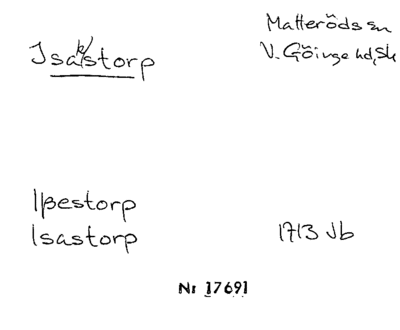 Isakstorp
Matteröds sn
V. Göinge hd, Sk
Ißestorp
Isastorp
1713 Jb
Nr 17691